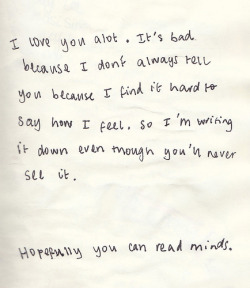 I love you alot. It's bad
because I don't always tell
you because I find it hard to
say how I feel. So I'm writing
it down even though you'll never
see it.
Hopefully you can read minds.